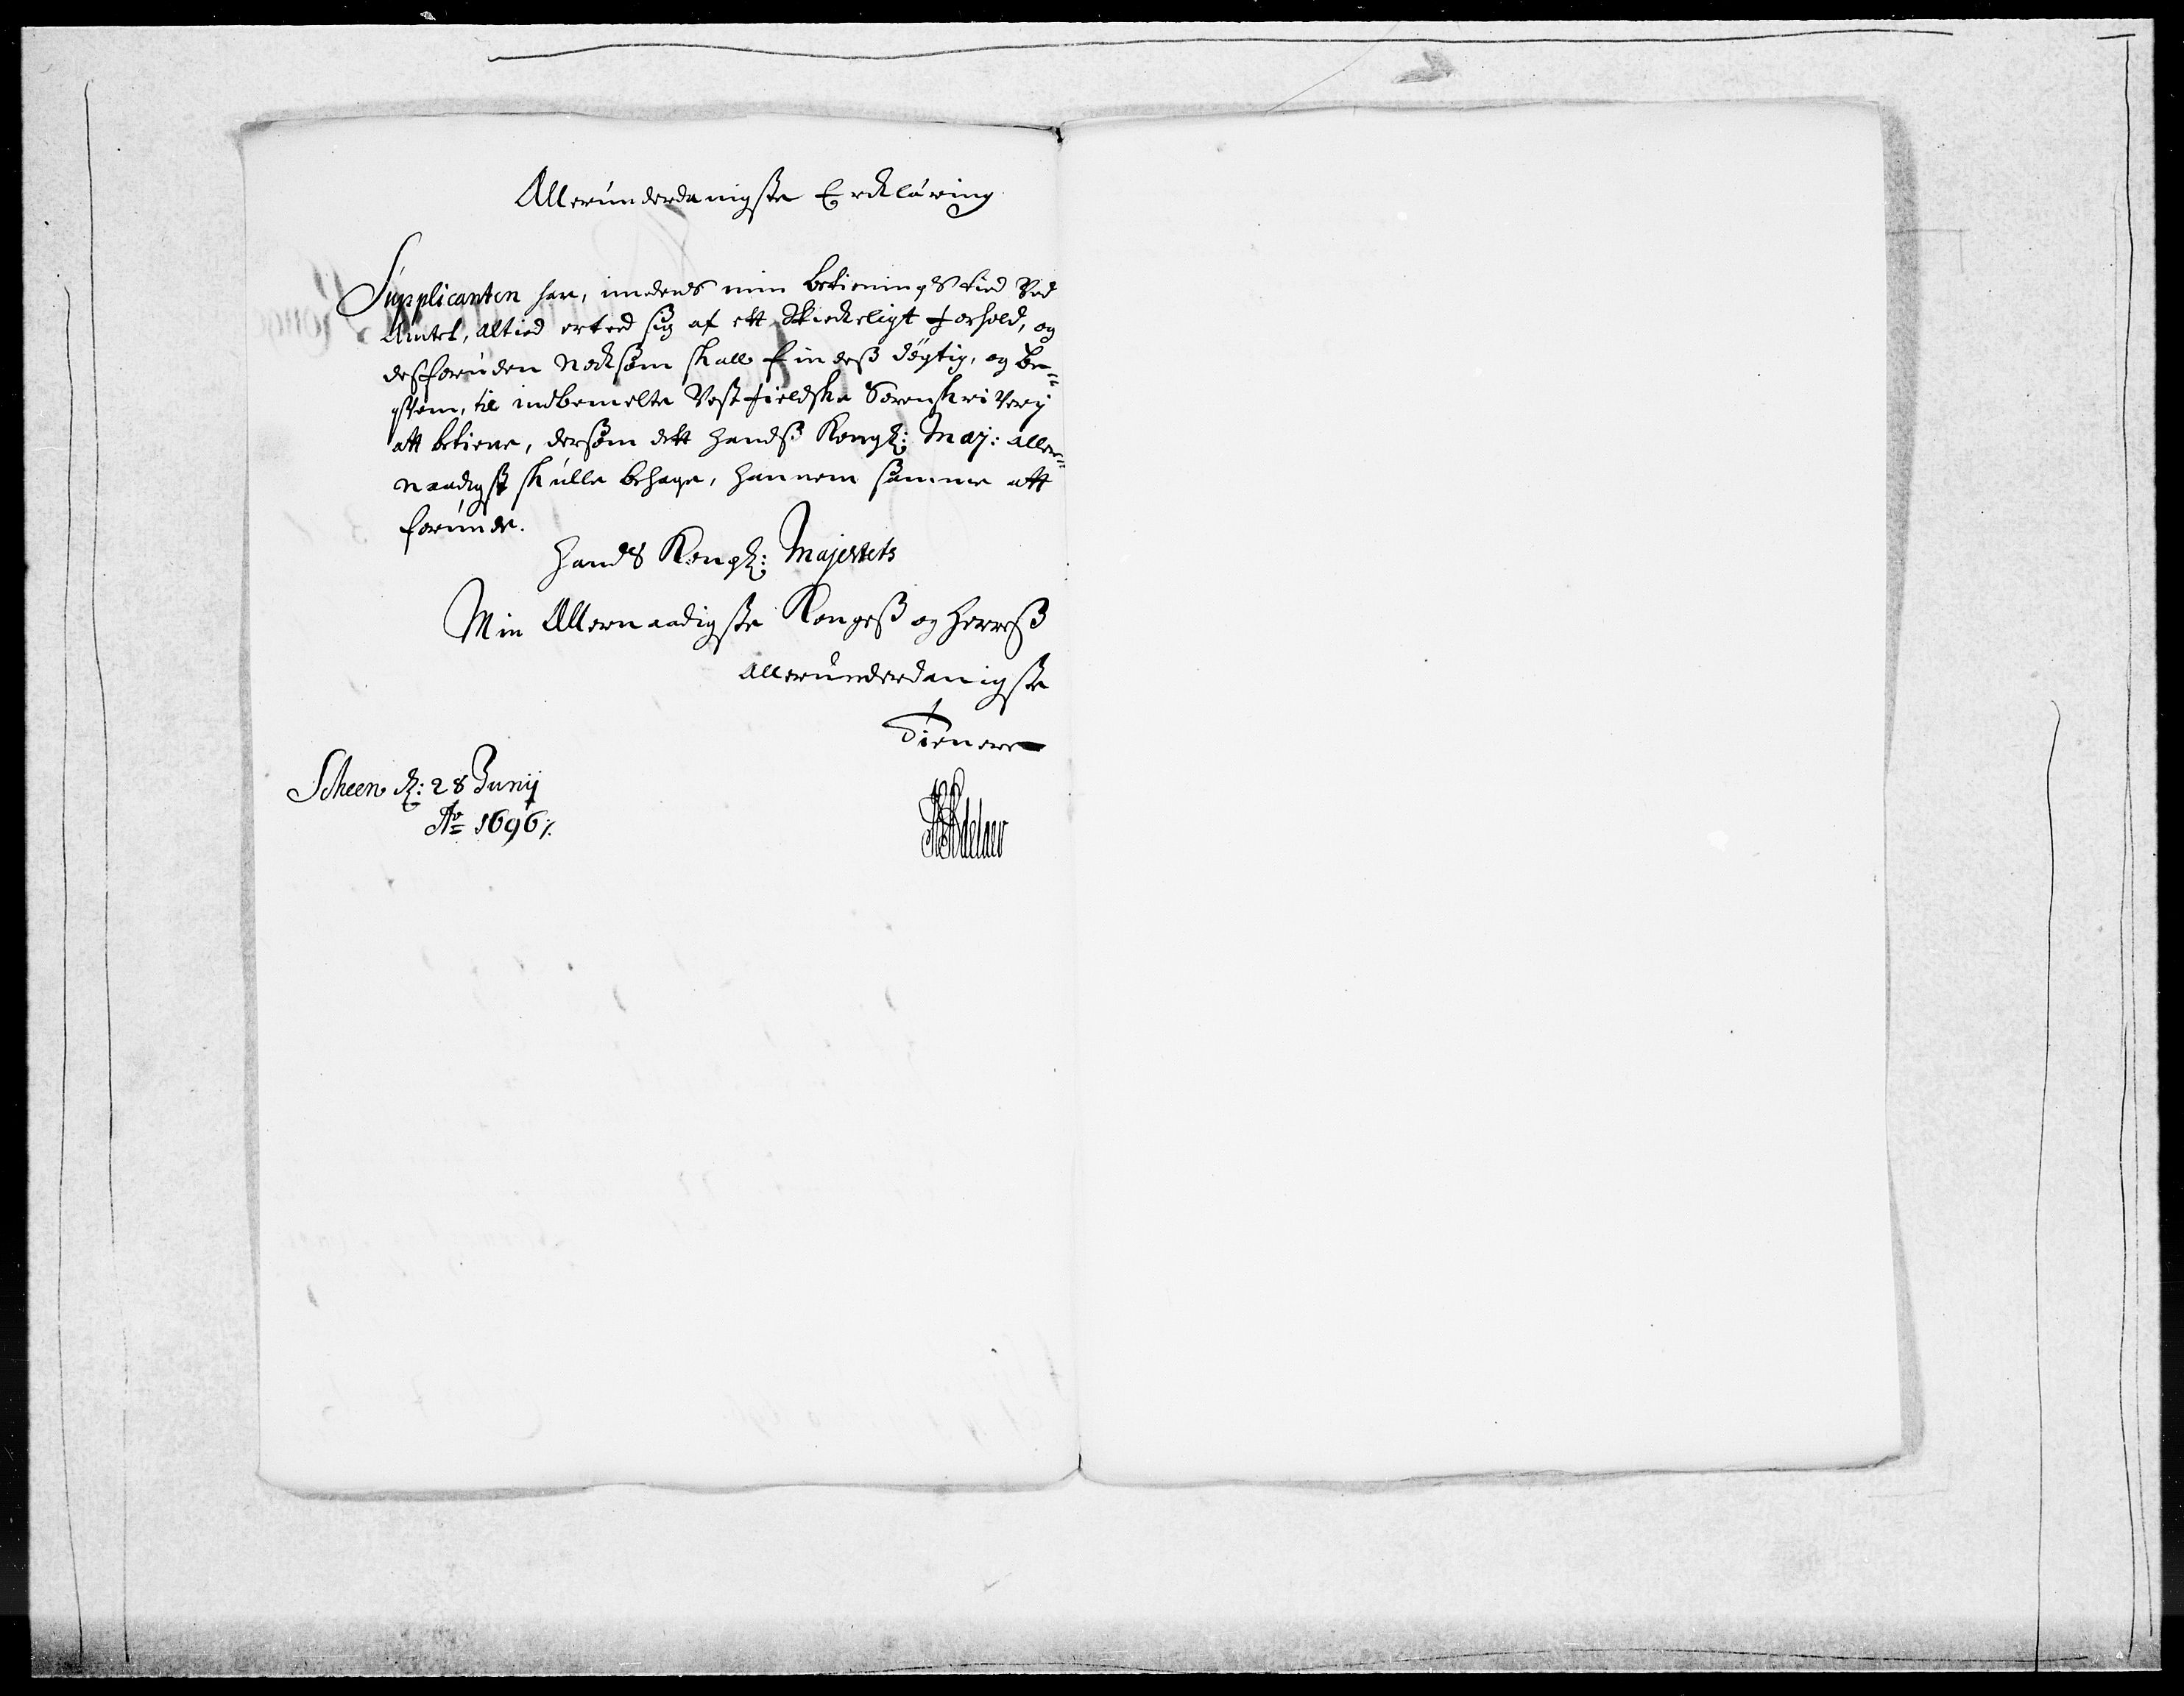 Allerunderdanigste Erckläring
Supplicanten har, imedens min betienings tied Ved
Amtet, altied erted sig af ett Skickeligt forhold, og
desforuden nocksom skall findeß dögtig, og be¬
qvem, til indbemelte Vestfieldske Sorenskriverij
att betiene, dersom dett Handß Kongl: Maj: aller¬
naadigst skulle behage, hannem samme att
forunde.
Hands Kongl: Majestets
Min Allernaadigste Kongeß og Herreß
allerunderdanigste
Tienere
Scheen d: 28 Junij
Ao 1696/.
Adelaer